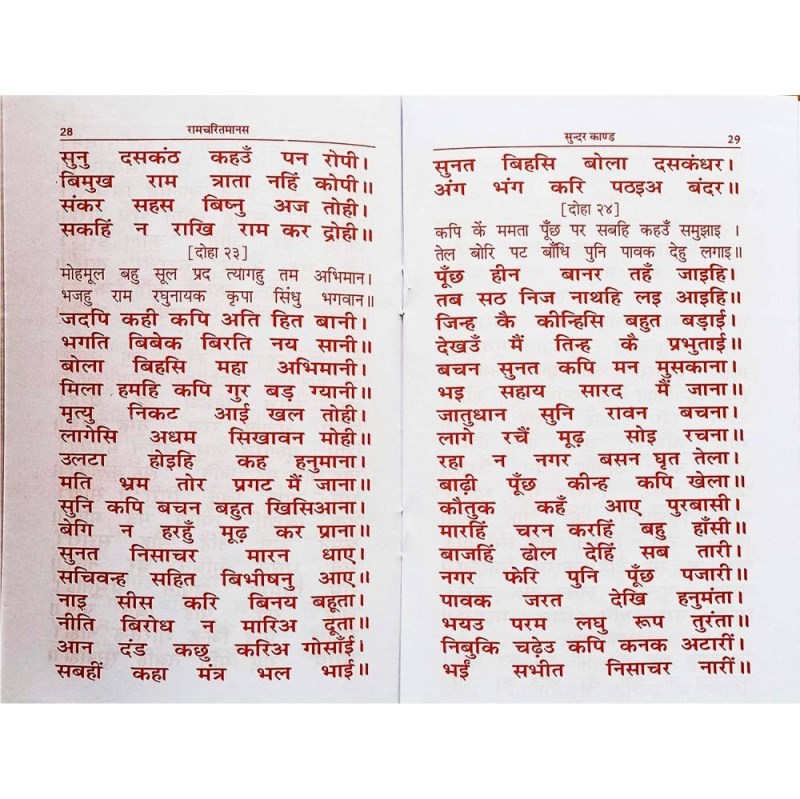 28 रामचरितमानस
सुनु दसकंठ कहउँ पन रोपी।
बिमुख राम त्राता नहिं कोपी॥
संकर सहस बिष्नु अज तोही।
सकहिं न राखि राम कर द्रोही॥
[दोहा २३]
मोहमूल बहु सूल प्रद त्यागहु तम अभिमान।
भजहु राम रघुनायक कृपा सिंधु भगवान॥
जदपि कही कपि अति हित बानी।
भगति बिबेक बिरति नय सानी॥
बोला बिहसि महा अभिमानी।
मिला हमहि कपि गुर बड़ ग्यानी॥
मृत्यु निकट आई खल तोही।
लागेसि अधम सिखावन मोही॥
उलटा होइहि कह हनुमाना।
मति भ्रम तोर प्रगट मैं जाना॥
सुनि कपि बचन बहुत खिसिआना।
बेगि न हरहुँ मूढ़ कर प्राना॥
सुनत निसाचर मारन धाए।
सचिवन्ह सहित बिभीषनु आए॥
नाइ सीस करि बिनय बहूता।
नीति बिरोध न मारिअ दूता॥
आन दंड कछु करिअ गोसाँई।
सबहीं कहा मंत्र भल भाई॥
सुन्दर काण्ड 29
सुनत बिहसि बोला दसकंधर।
अंग भंग करि पठइअ बंदर॥
[दोहा २४]
कपि कें ममता पूँछ पर सबहि कहउँ समुझाइ ।
तेल बोरि पट बाँधि पुनि पावक देहु लगाइ॥
पूँछ हीन बानर तहँ जाइहि।
तब सठ निज नाथहि लइ आइहि॥
जिन्ह कै कीन्हिसि बहुत बड़ाई।
देखउँ मैं तिन्ह कै प्रभुताई॥
बचन सुनत कपि मन मुसकाना।
भइ सहाय सारद मैं जाना॥
जातुधान सुनि रावन बचना।
लागे रचैं मूढ़ सोइ रचना॥
रहा न नगर बसन घृत तेला।
बाढ़ी पूँछ कीन्ह कपि खेला॥
कौतुक कहँ आए पुरबासी।
मारहिं चरन करहिं बहु हाँसी॥
बाजहिं ढोल देहिं सब तारी।
नगर फेरि पुनि पूँछ पजारी॥
पावक जरत देखि हनुमंता।
भयउ परम लघु रूप तुरंता॥
निबुकि चढ़ेउ कपि कनक अटारीं।
भईं सभीत निसाचर नारीं॥